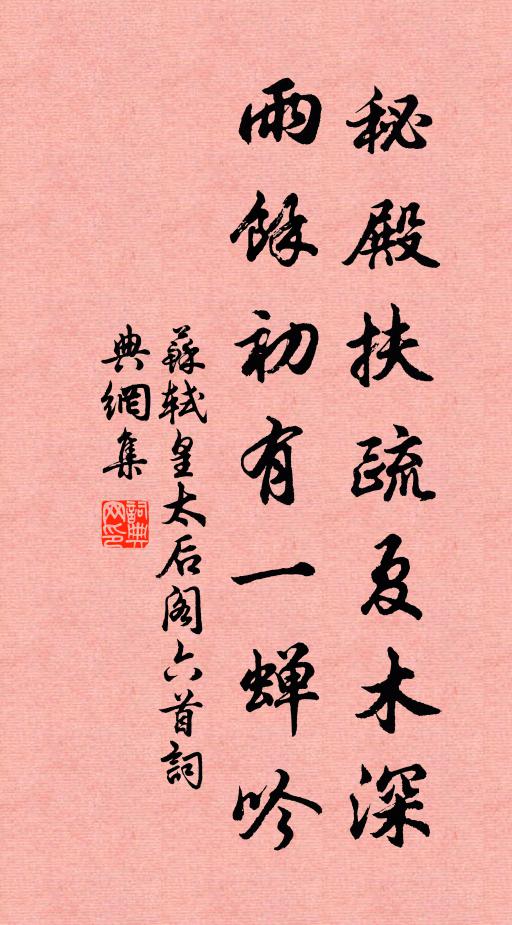 秘殿扶疏夏木深
雨餘初有一蝉吟
蘇軾皇太后阁六首詞
典網集
詞典网印